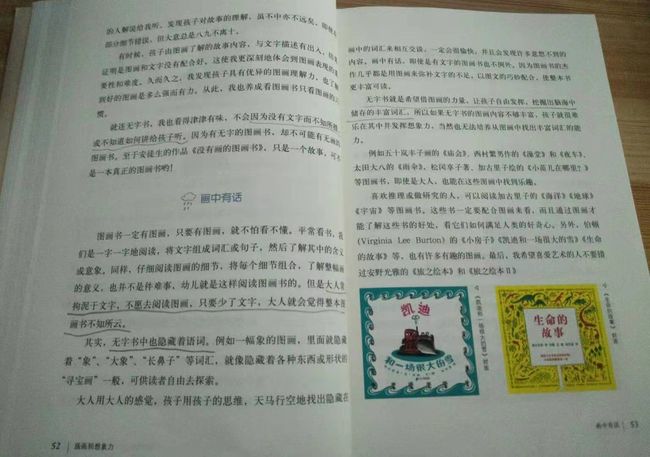 的人解说给我听，发现孩子对故事的理解，虽不中亦不远矣，即使有
部分细节错误，但大意总是八九不离十。
有时候，孩子由图画了解的故事内容，与文字描述有出入，结果
证明是图画和文字没有配合好。这使我更深刻地体会到图画表现的重
要性和难度。久而久之，我发现孩子具有优异的图画理解力，也了解
到好的图画是多么强而有力。从此，我也养成看图画书只看图画的习
就连无字书，我也看得津津有味，不会因为没有文字而不知所措
或不知道如何讲给孩子听。因为有无字的图画书，却不可能有无画的
图画书。至于安徒生的作品《没有画的图画书》，只是一个故事，可不
是一本真正的图画书哟！
画中有话
图画书一定有图画，只要有图画，就不怕看不懂。平常看书，我
们是一字一字地阅读，将文字组成词汇或句子，然后了解其中的含义
或意象。同样，仔细阅读图画的细节，将每个细节组合，了解整幅画
的意义，也并不是件难事，幼儿就是这样阅读图画书的。但是大人常
拘泥于文字，不愿去阅读图画，只要少了文字，大人就会觉得整本图
画书不知所云。
其实，无字书中也隐藏着语词。例如一幅象的图画，里面就隐藏
着“象”、“大象”、“长鼻子”等词汇，就像隐藏着各种东西或形状的
“寻宝画”一般，可供读者自由去探索。
大人用大人的感觉，孩子用孩子的思维，天马行空地找出隐藏在
52 插画和想象力
画中的词汇来相互交谈，一定会很愉快，并且会发现许多意想不到的
内容。画中有话，即使是有文字的图画书也不例外，因为图画书的杰
作几乎都是用图画来弥补文字的不足，以图文的巧妙配合，使整本书
更丰富可读。
无字书就是希望借图画的力量，让孩子自由发挥，挖掘出脑海中
储存的丰富词汇。所以如果无字书的图画内容不够丰富，孩子就很难
乐在其中并发挥想象力，当然也无法培养从图画中找出丰富词汇的能
力。
例如五十岚丰子画的《庙会》、西村繁男作的《澡堂》和《夜车》、
太田大八的《雨伞》、松冈享子著、加古里子绘的《小茴儿在哪里？》
等图画书，即使是大人，也能在这些图画中找到乐趣。
喜欢推理或做研究的人，可以阅读加古里子的《海洋》《地球》
《宇宙》等图画书。这些书一定要配合图画来看，而且通过图画才
能了解这些书的好处，看它们如何满足人类的好奇心。另外，伯顿
(Virginia Lee Burton) 的《小房子》《凯迪和一场很大的雪》《生命
的故事》等，也有许多有趣的图画。最后，我希望喜爱艺术的人不要错
过安野光雅的《旅之绘本》和《旅之绘本Ⅱ》
凯迪
和一场很大的雪
《凯迪和一场很大的雪》封面
生命的
故事
《生命的故事》封面
画中有话 53